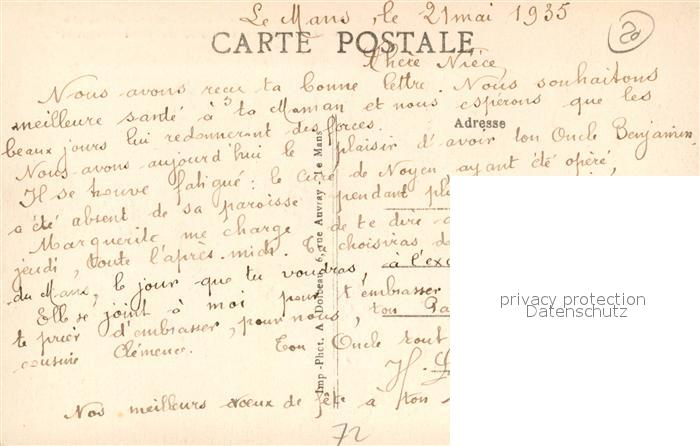 Le Mans, le 21 mai 1935
20
CARTE POSTALE
Chère Nièce,
Nous avons reçu ta bonne lettre. Nous souhaitons
meilleure santé à ta Maman et nous espérons que les
beaux jours lui redonneront des forces.
Adresse
Nous avons aujourd'hui le plaisir d'avoir ton Oncle Benjamin.
Il se trouve fatigué : le curé de Noyen, ayant été opéré,
a été absent de sa paroisse pendant
Marguerite me charge de te dire
jeudi, toute l'après-midi. Tu choisiras
du Mans, le jour que tu voudras, à
Elle se joint à moi pour t'embrasser
te prier d'embrasser, pour nous, ton
cousine Clémence. Ton Oncle
H.
Nos meilleurs vœux de fête à ton
Imp.-Phot. A. Dolbeau, 6, rue Auvray - Le Mans
72
privacy protection
Datenschutz